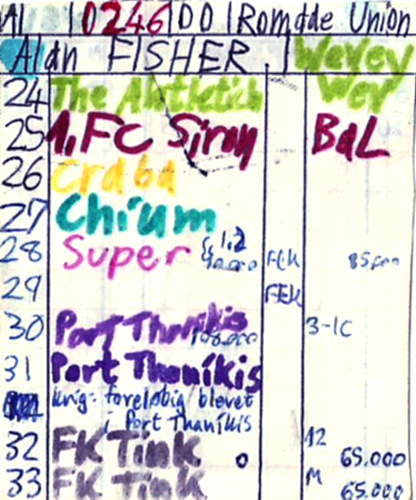 Al 10246 DD Romdde Union
Aldn FISHER. Wevey
24 The Ahtletich Wer
25 1.FC Siroy BdL
26 Crdbd
27 Chíum
28 Super 1,2 FEK
29 FEK
30 Port Thanikis 3-1C
31 Port Thanikis
krig- foreløbig blevet
i Port Thaníkis
32 FK Tink 0 A2 65.000
33 FK Tink M 65.000